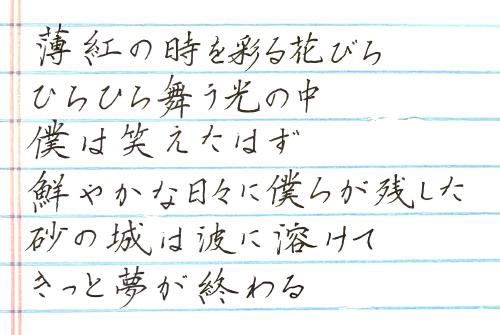 薄紅の時を彩る花びら
ひらひら舞う光の中
僕は笑えたはず
鮮やかな日々に僕らが残した
砂の城は波に溶けて
きっと夢が終わる